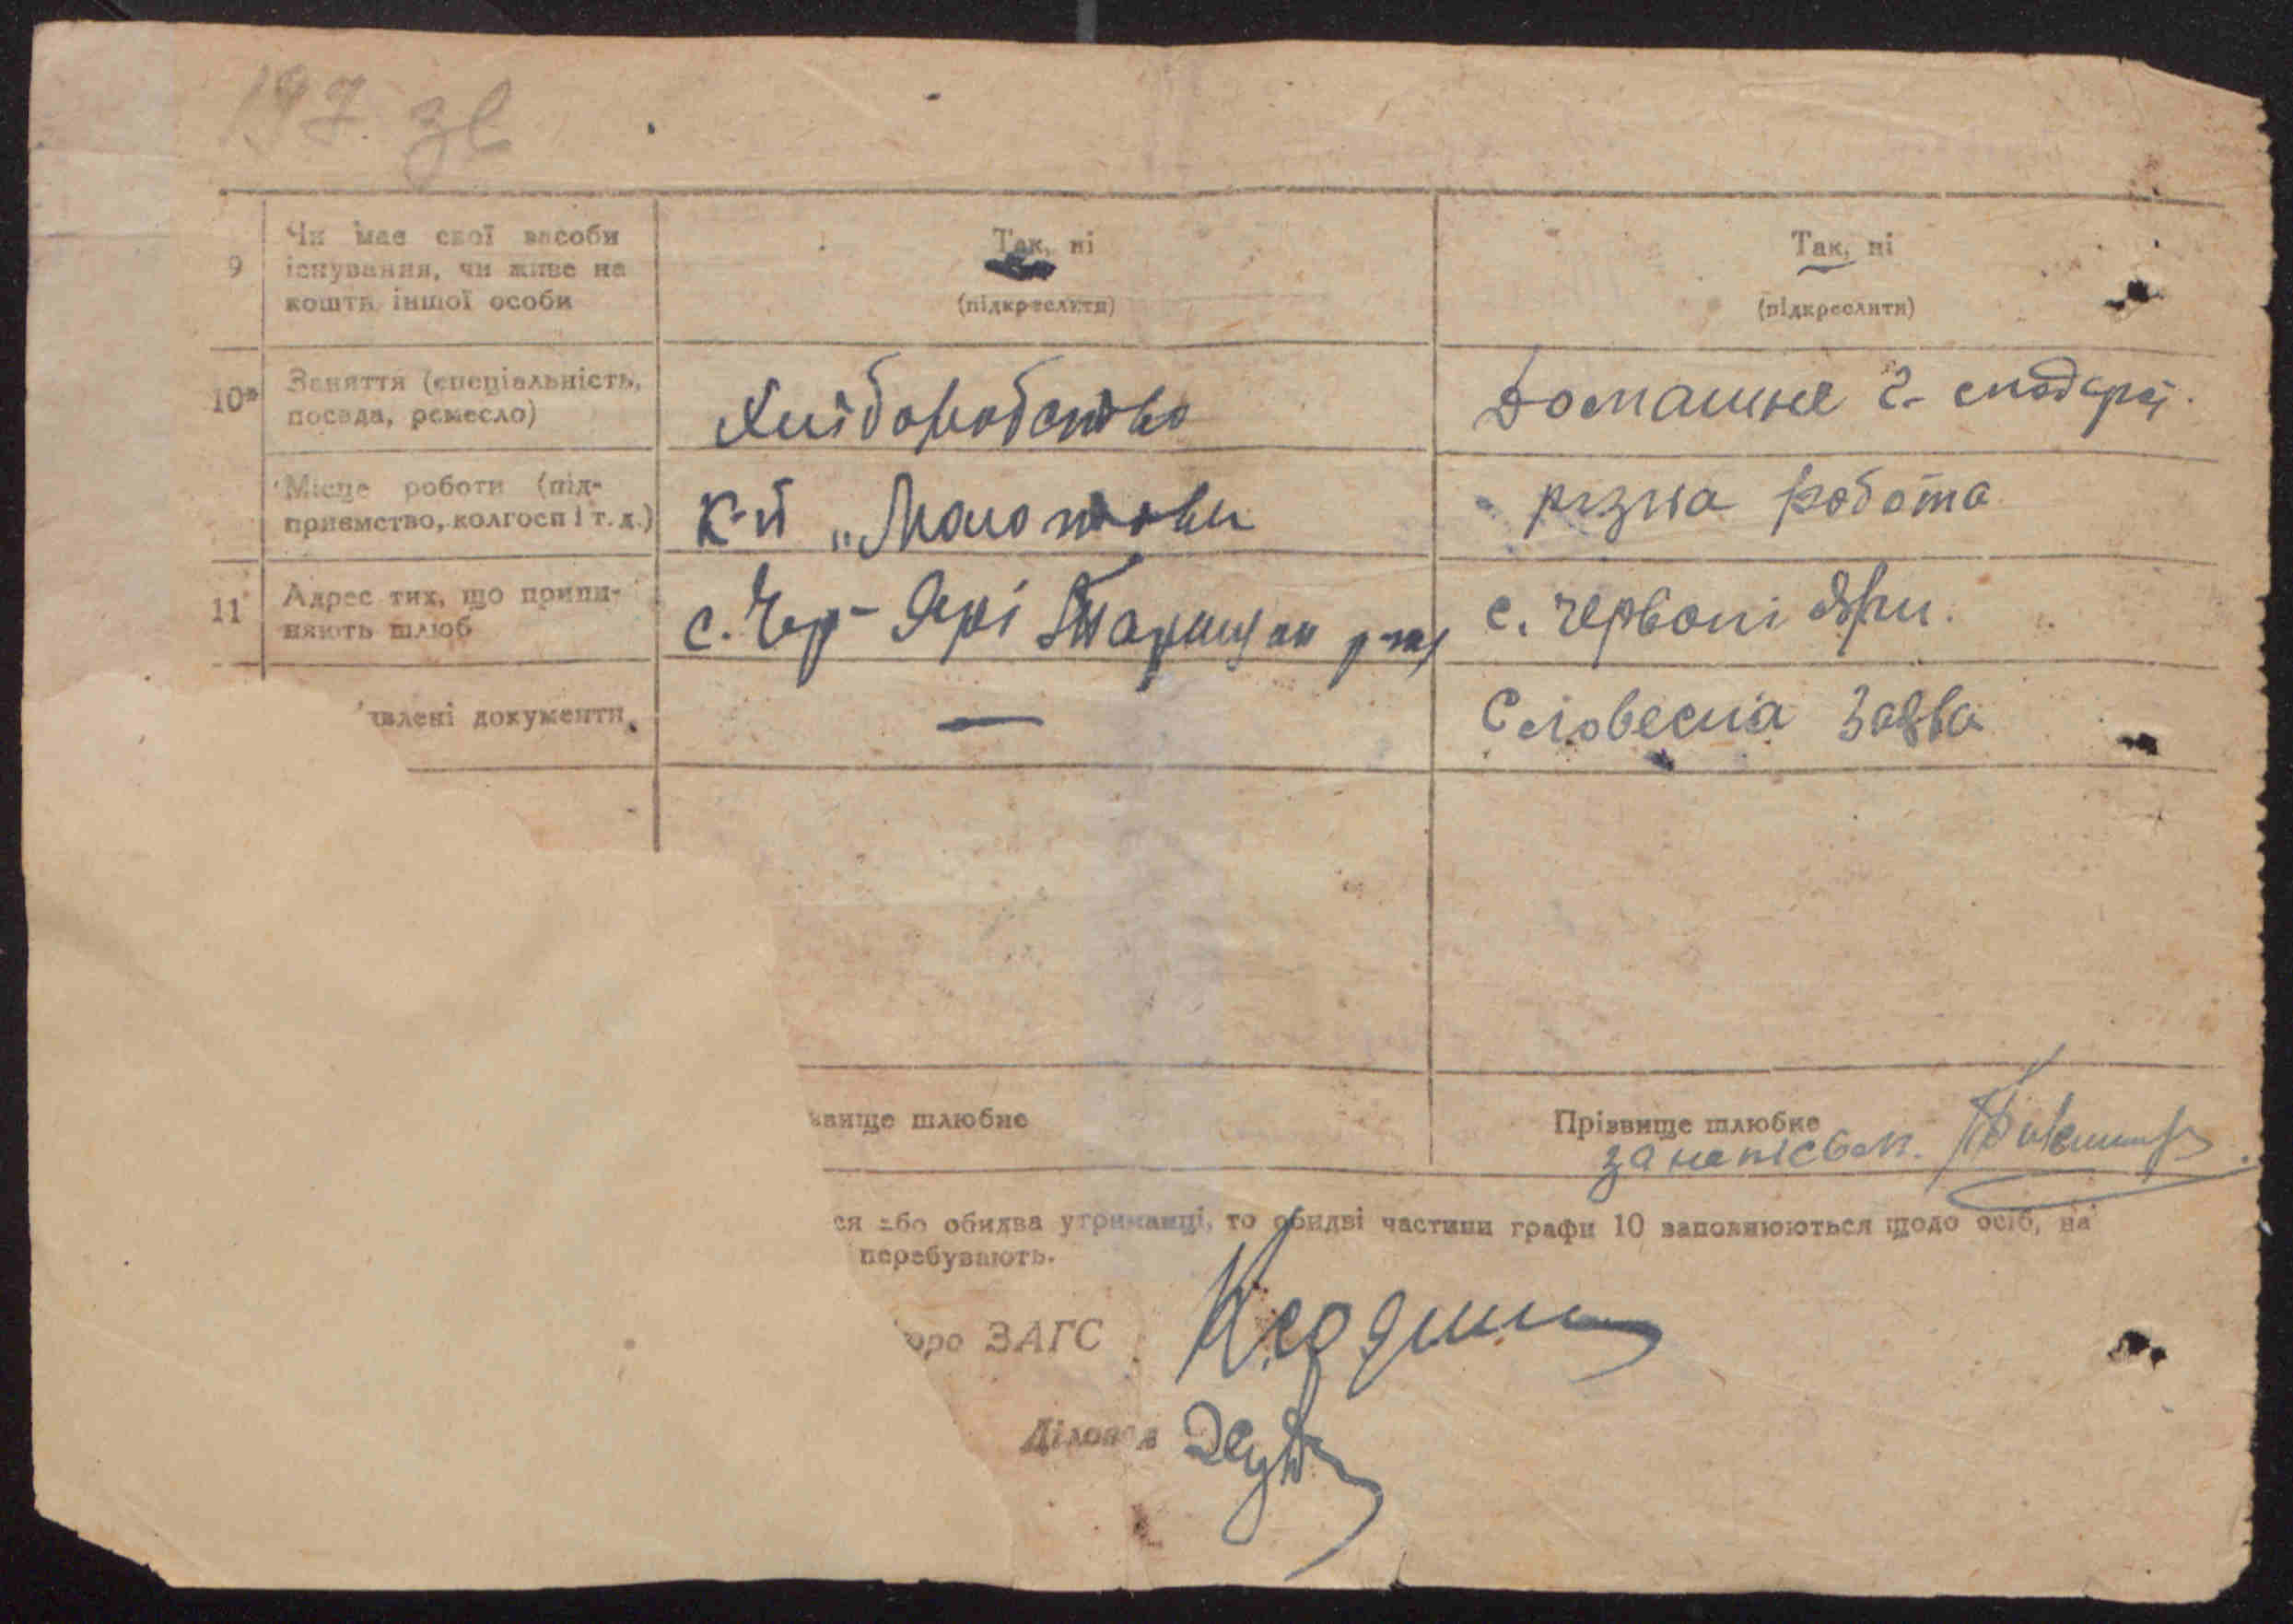 197 зв
9 Чи має свої засоби
існування, чи живе на
кошти іншої особи
Так, ні
(підкреслити)
Так, ні
(підкреслити)
10* Заняття (спеціальність,
посада, ремесло)
Хліборобство
Домашнє г-сподарс.
Місце роботи (під-
приємство, колгосп і т. д.)
к-п „Молотова
різна робота
11 Адрес тих, що припи-
няють шлюб
с. Чер- Ярі р-ну
с. Червоні Яри.
явлені документи
—
Словесна заява
звище шлюбне
Прізвище шлюбне
ся або обидва утриманці, то обидві частини графи 10 заповнюються щодо осіб, на
перебувають.
юро ЗАГС
Діловод